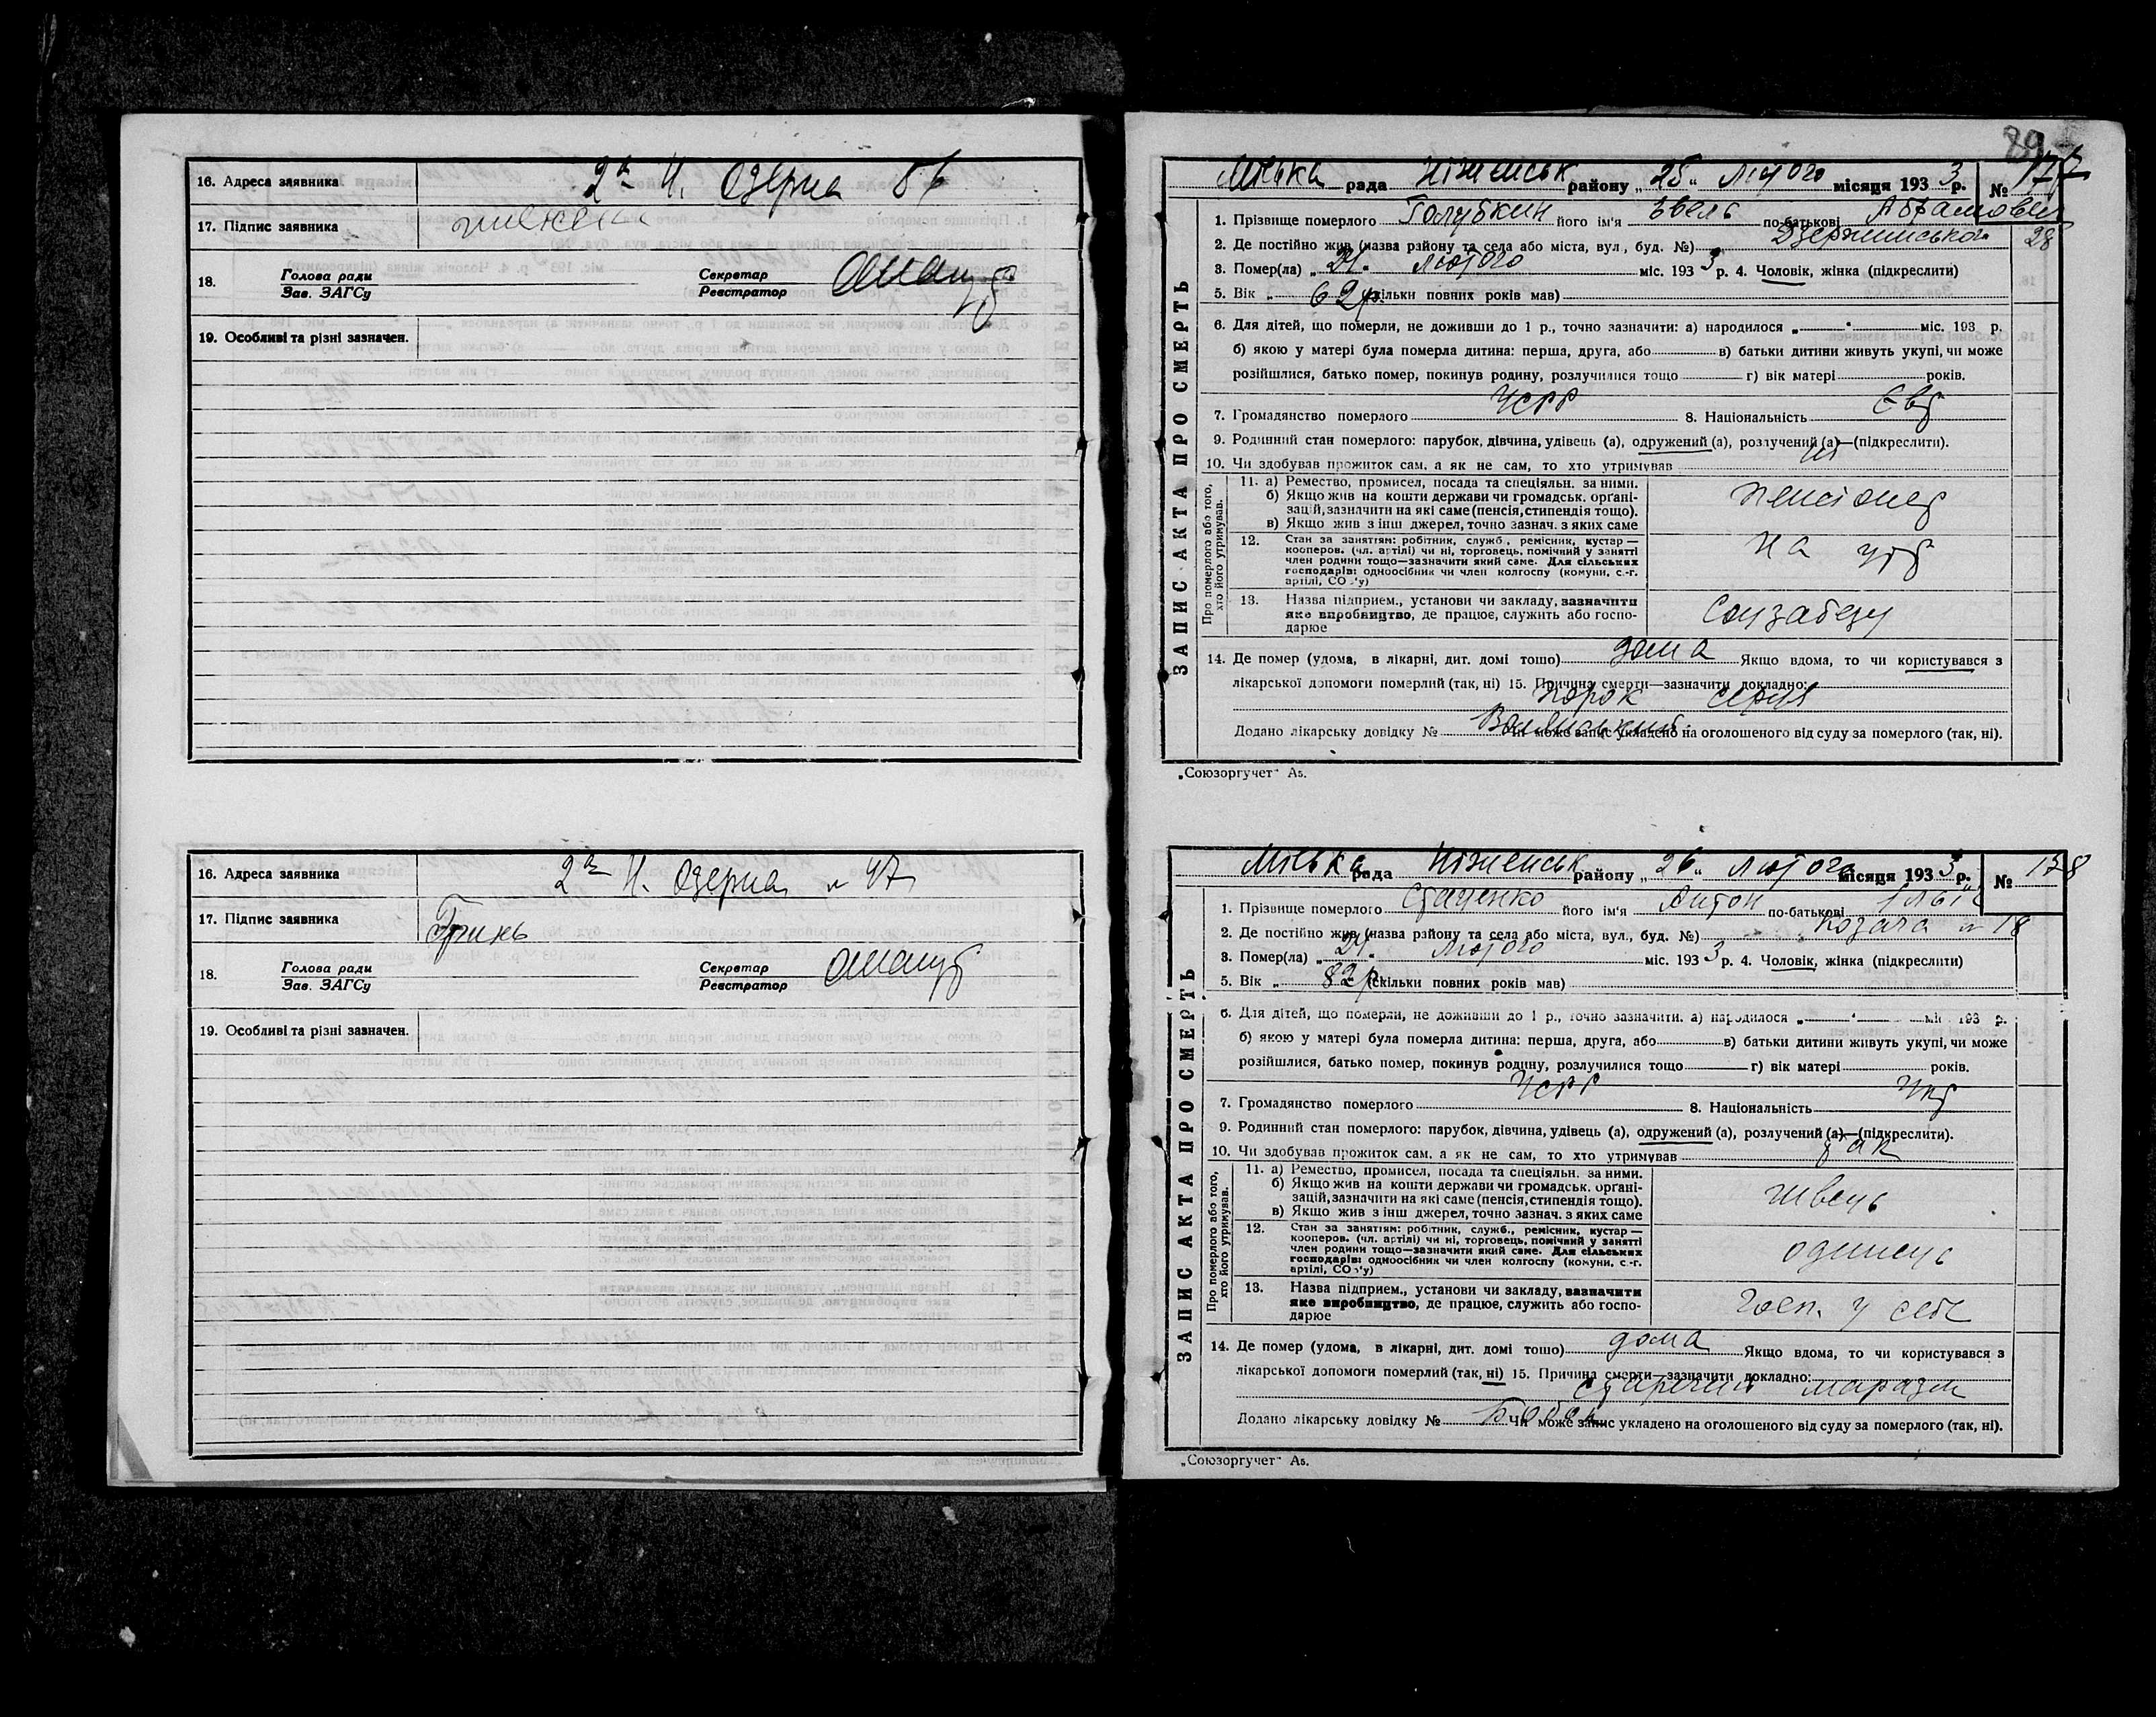 16. Адреса заявника 2а Н. Озерна 86
17. Підпис заявника
18. Голова ради Секретар
Зав. ЗАГСу Реєстратор
19. Особливі та різні зазначен.
16. Адреса заявника 2а Н. Озерна № 47
17. Підпис заявника Гринь
18. Голова ради Секретар
Зав. ЗАГСу Реєстратор
19. Особливі та різні зазначен.
89
Міська рада Ніженськ району „25" Лютого місяця 1933 р. № 177
ЗАПИС АКТА ПРО СМЕРТЬ
1. Прізвище померлого Голубкин його ім'я Евель по-батькові Абрамович
2. Де постійно жив (назва району та села або міста, вул., буд. №) Дзержинська 28
3. Помер(ла) „24" Лютого міс. 1933 р. 4. Чоловік, жінка (підкреслити)
5. Вік „ 62 р. (скільки повних років мав)
6. Для дітей, що померли, не доживши до 1 р., точно зазначити: а) народилося „ " міс. 193 р.
б) якою у матері була померла дитина: перша, друга, або в) батьки дитини живуть укупі, чи може
розійшлися, батько помер, покинув родину, розлучилися тощо г) вік матері років.
7. Громадянство померлого УСРР 8. Національність Євр
9. Родинний стан померлого: парубок, дівчина, удівець (а), одружений (а), розлучений (а)—(підкреслити).
10. Чи здобував прожиток сам, а як не сам, то хто утримував ні
Про померлого або того, хто його утримував.
11. а) Ремество, промисел, посада та спеціяльн. за ними.
б) Якщо жив на кошти держави чи громадськ. орґані-
зацій, зазначити на які саме (пенсія, стипендія тощо).
в) Якщо жив з інш джерел, точно зазнач. з яких саме
пенсіонер
12. Стан за заняттям: робітник, служб., ремісник, кустар—
кооперов. (чл. артілі) чи ні, торговець, помічний у занятті
член родини тощо—зазначити який саме. Для сільських
господарів: одноосібник чи член колгоспу (комуни, с.-г.
артілі, СОЗ'у)
на утр
13. Назва підприєм., установи чи закладу, зазначити
яке виробництво, де працює, служить або госпо-
дарює
Соцзабезу
14. Де помер (удома, в лікарні, дит. домі тощо) дома Якщо вдома, то чи користувався з
лікарської допомоги померлий (так, ні) 15. Причина смерти—зазначити докладно:
порок серця
Додано лікарську довідку № Чи може запис укладено на оголошеного від суду за померлого (так, ні).
„Союзоргучет" А5.
Міська рада Ніженськ району „26" Лютого місяця 1933 р. № 178
ЗАПИС АКТА ПРО СМЕРТЬ
1. Прізвище померлого Стаценко його ім'я Антон по-батькові Ільїч
2. Де постійно жив (назва району та села або міста, вул., буд. №) Козача № 18
3. Помер(ла) „24" Лютого міс. 1933 р. 4. Чоловік, жінка (підкреслити)
5. Вік „ 82 р. (скільки повних років мав)
6. Для дітей, що померли, не доживши до 1 р., точно зазначити: а) народилося „ " міс. 193 р.
б) якою у матері була померла дитина: перша, друга, або в) батьки дитини живуть укупі, чи може
розійшлися, батько помер, покинув родину, розлучилися тощо г) вік матері років.
7. Громадянство померлого УСРР 8. Національність Укр
9. Родинний стан померлого: парубок, дівчина, удівець (а), одружений (а), розлучений (а)—(підкреслити).
10. Чи здобував прожиток сам, а як не сам, то хто утримував так
Про померлого або того, хто його утримував.
11. а) Ремество, промисел, посада та спеціяльн. за ними.
б) Якщо жив на кошти держави чи громадськ. орґані-
зацій, зазначити на які саме (пенсія, стипендія тощо).
в) Якщо жив з інш джерел, точно зазнач. з яких саме
швець
12. Стан за заняттям: робітник, служб., ремісник, кустар—
кооперов. (чл. артілі) чи ні, торговець, помічний у занятті
член родини тощо—зазначити який саме. Для сільських
господарів: одноосібник чи член колгоспу (комуни, с.-г.
артілі, СОЗ'у)
одинець
13. Назва підприєм., установи чи закладу, зазначити
яке виробництво, де працює, служить або госпо-
дарює
Госп. у себе
14. Де помер (удома, в лікарні, дит. домі тощо) дома Якщо вдома, то чи користувався з
лікарської допомоги померлий (так, ні) 15. Причина смерти—зазначити докладно:
старечий маразм
Додано лікарську довідку № Чи може запис укладено на оголошеного від суду за померлого (так, ні).
„Союзоргучет" А5.